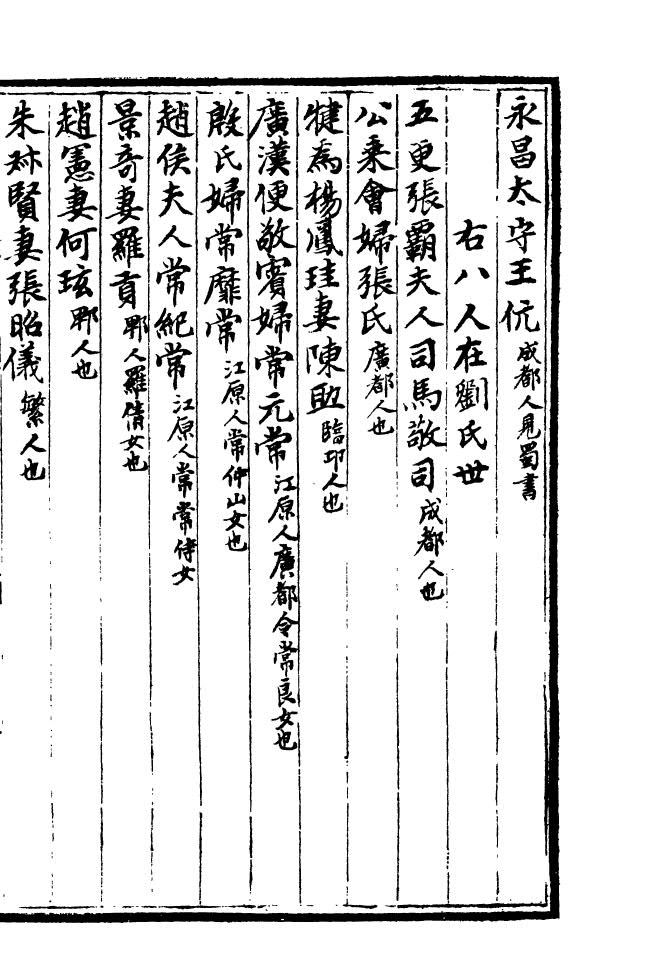 永昌太守王伉成都人見蜀書
右八人在劉氏世
五更張霸夫人司馬敬司成都人也
公乘會婦張氏廣都人也
犍為楊鳳珪妻陳助臨邛人也
廣漢便敬賓婦常元常江原人廣都令常良女也
殷氏婦常靡常江原人常仲山女也
趙侯夫人常紀常江原人常常侍女
景奇妻羅貢郫人羅倩女也
趙憲妻何玹郫人也
朱妻張昭儀繁人也